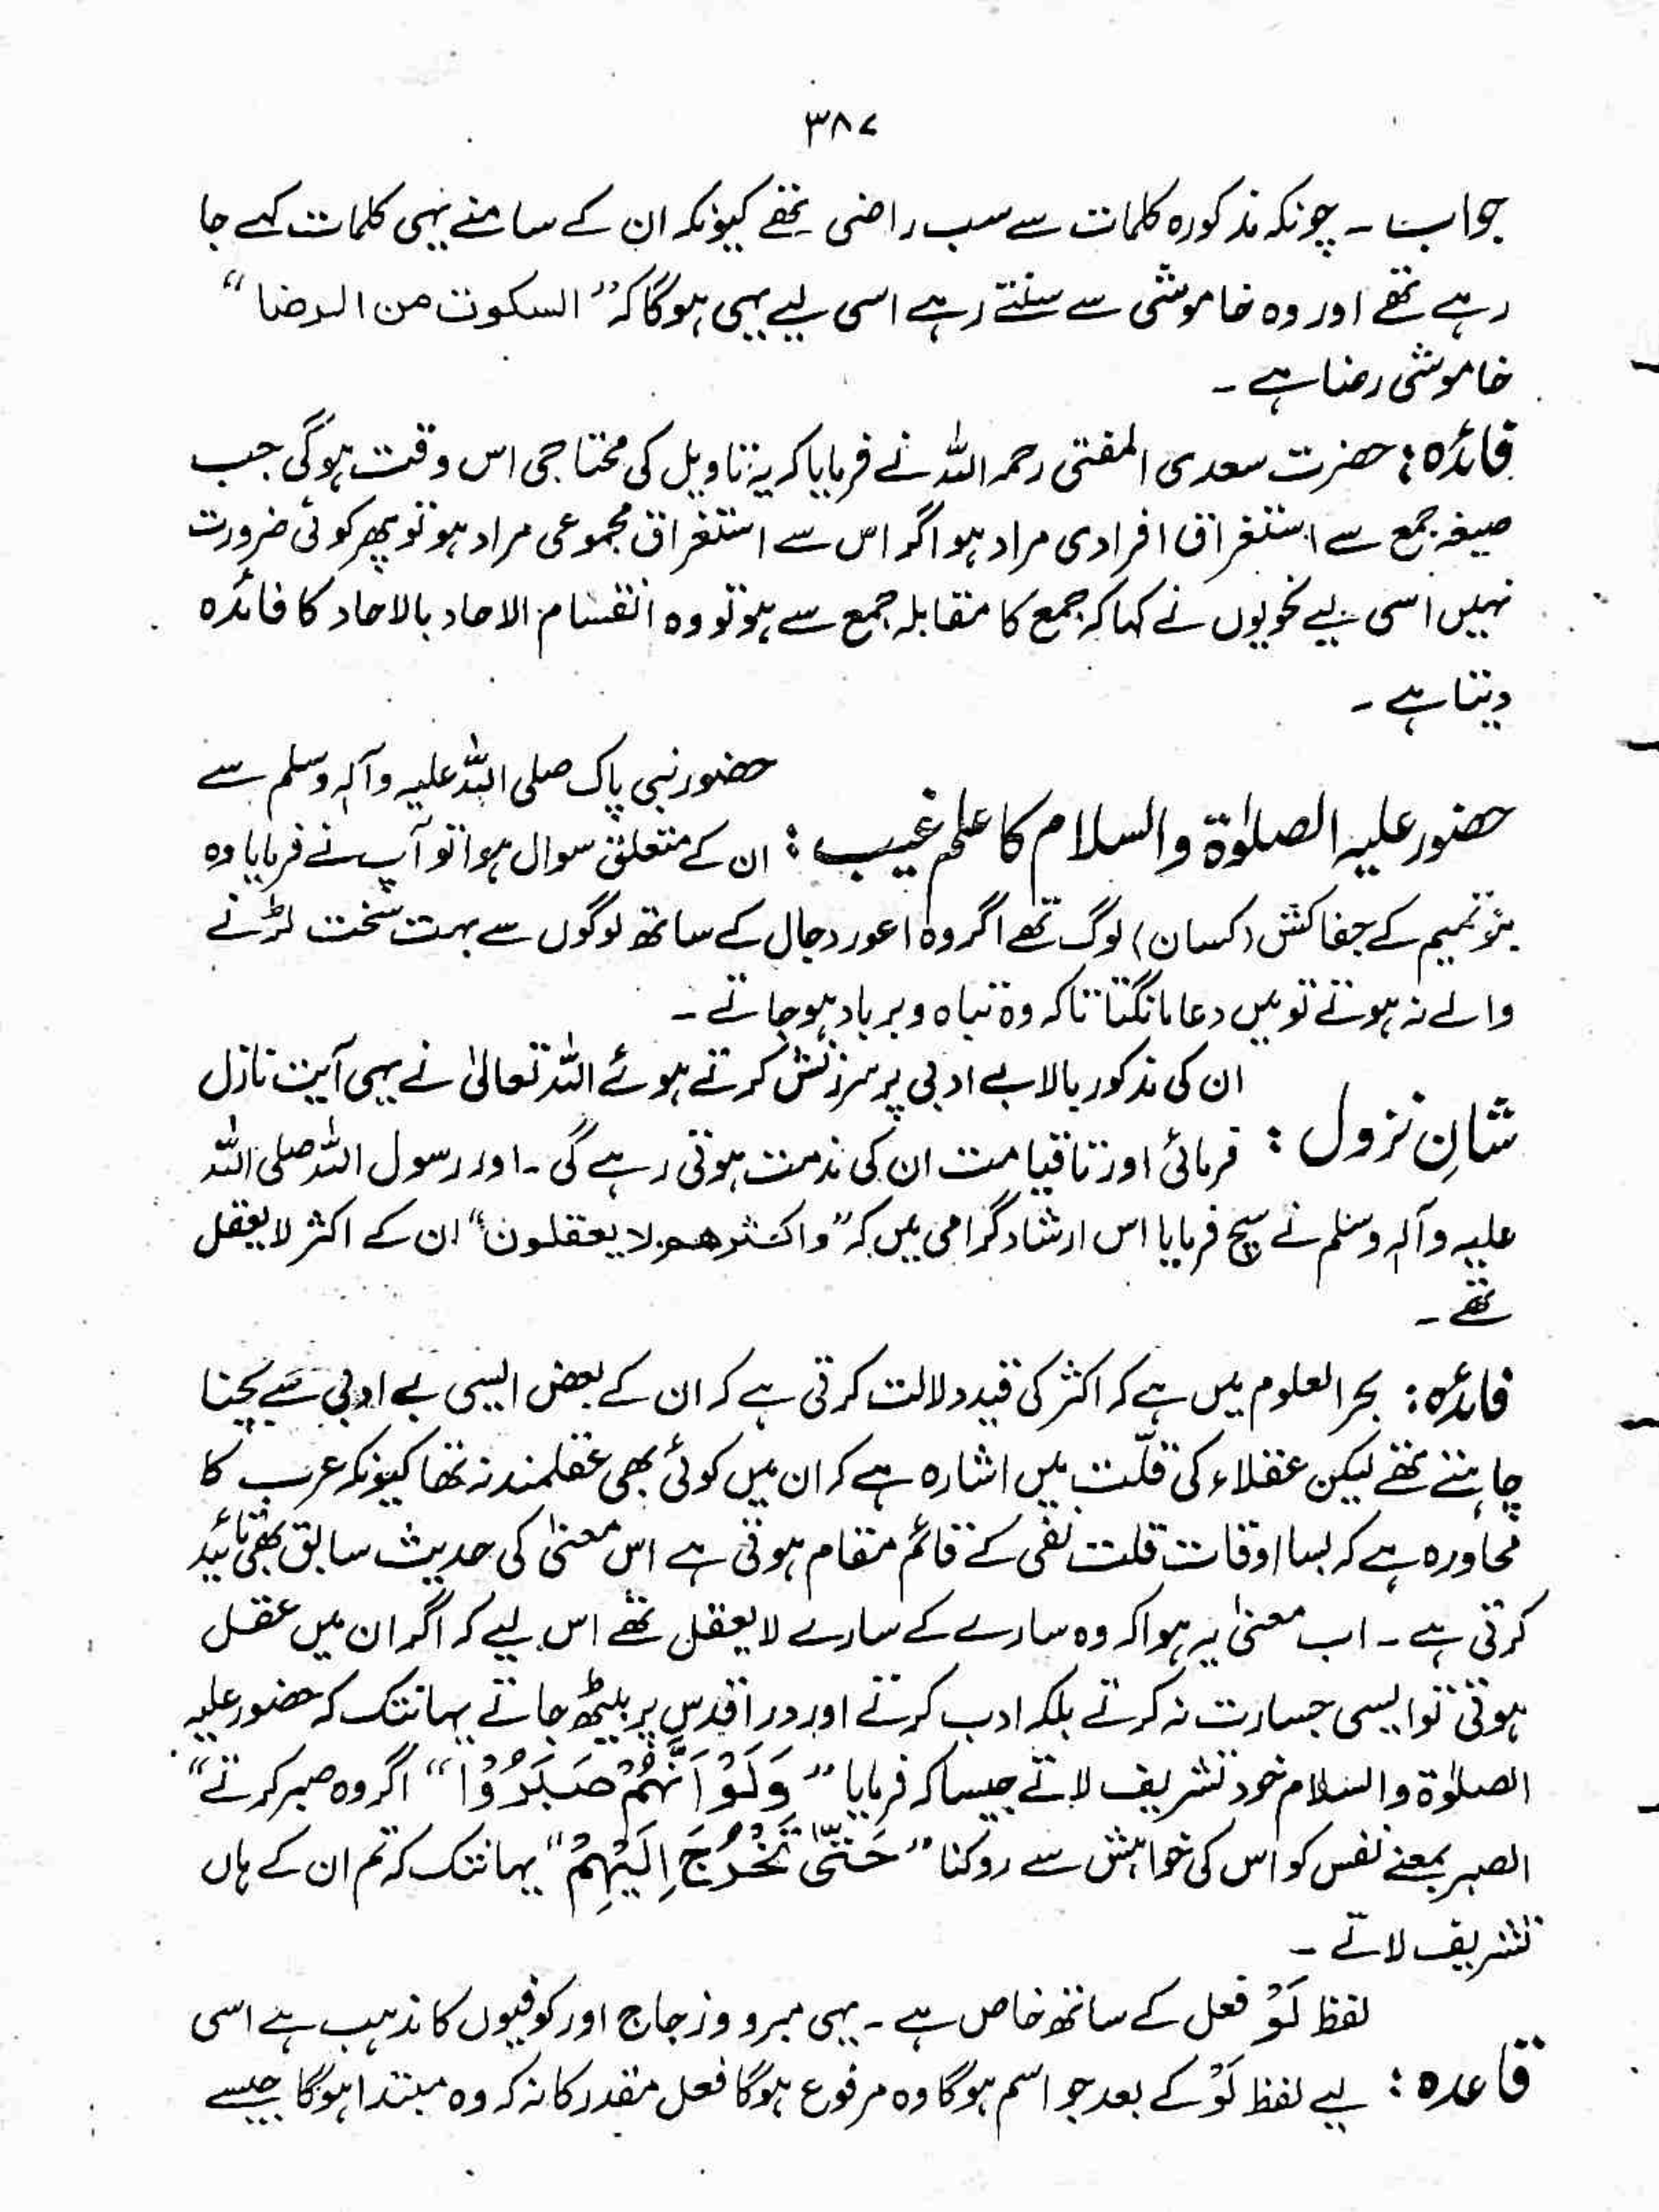 ۳۸۷
جواب ۔ چونکہ مذکورہ کلمات سے سب راضی تھے کیونکہ ان کے سامنے یہی کلمات کہے جا
رہے تھے اور وہ خاموشی سے سنتے رہے اسی لیے یہی ہوگا کہ "السکوت من الرضا"
خاموشی رضا ہے ۔
فائدہ : حضرت سعدی المفتی رحمہ اللہ نے فرمایا کہ یہ تاویل کی محتاجی اس وقت ہوگی جب
صیغہ جمع سے استغراق افرادی مراد ہو اگر اس سے استغراق مجموعی مراد ہو تو پھر کوئی ضرورت
نہیں اسی لیے نحویوں نے کہا کہ جمع کا مقابلہ جمع سے ہو تو وہ انقسام الاحاد بالاحاد کا فائدہ
دیتا ہے ۔
حضور نبی پاک صلی اللہ علیہ وآلہ وسلم سے
حضور علیہ الصلوٰۃ والسلام کا علم غیب : ان کے متعلق سوال ہوا تو آپ نے فرمایا وہ
بنو تمیم کے جفاکش (کسان) لوگ تھے اگر وہ اعور دجال کے ساتھ لوگوں سے بہت سخت لڑنے
والے نہ ہوتے تو میں دعا مانگتا تاکہ وہ تباہ و برباد ہو جاتے ۔
ان کی مذکور بالا بے ادبی پر سرزنش کرتے ہوئے اللہ تعالیٰ نے یہی آیت نازل
شانِ نزول : فرمائی اور تا قیامت ان کی مذمت ہوتی رہے گی ۔ اور رسول اللہ صلی اللہ
علیہ وآلہ وسلم نے سچ فرمایا اس ارشاد گرامی میں کہ "واکثرھم لا یعقلون" ان کے اکثر لا یعقل
تھے ۔
فائدہ : بحر العلوم میں ہے کہ اکثر کی قید دلالت کرتی ہے کہ ان کے بعض ایسی بے ادبی سے بچنا
چاہتے تھے لیکن عقلاء کی قلّت میں اشارہ ہے کہ ان میں کوئی بھی عقلمند نہ تھا کیونکہ عرب کا
محاورہ ہے کہ بسا اوقات قلت نفی کے قائم مقام ہوتی ہے اس معنیٰ کی حدیث سابق بھی تائید
کرتی ہے ۔ اب معنیٰ یہ ہوا کہ وہ سارے کے سارے لا یعقل تھے اس لیے کہ اگر ان میں عقل
ہوتی تو ایسی جسارت نہ کرتے بلکہ ادب کرتے اور در اقدس پر بیٹھ جاتے یہانتک کہ حضور علیہ
الصلوٰۃ والسلام خود تشریف لاتے جیسا کہ فرمایا "وَلَوْ اَنَّهُمْ صَبَرُوْا" اگر وہ صبر کرتے"
الصبر بمعنے نفس کو اس کی خواہش سے روکنا "حَتّٰی تَخْرُجَ اِلَیْهِمْ" یہانتک کہ تم ان کے ہاں
تشریف لاتے ۔
لفظ لَوْ فعل کے ساتھ خاص ہے ۔ یہی مبرو وزجاج اور کوفیوں کا مذہب ہے اسی
قاعدہ : لیے لفظ لَوْ کے بعد جو اسم ہوگا وہ مرفوع ہوگا فعل مقدر کا نہ کہ وہ مبتدا ہوگا جیسے